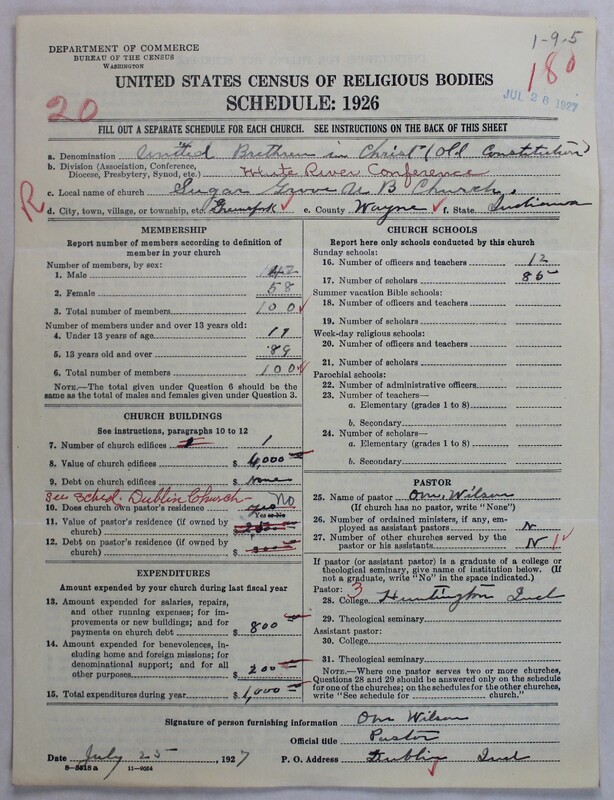 DEPARTMENT OF COMMERCE
BUREAU OF THE CENSUS
WASHINGTON
1-9-5
180
JUL 28 1927
UNITED STATES CENSUS OF RELIGIOUS BODIES
SCHEDULE: 1926
20
FILL OUT A SEPARATE SCHEDULE FOR EACH CHURCH. SEE INSTRUCTIONS ON THE BACK OF THIS SHEET
a. Denomination United Brethren in Christ (Old Constitution)
b. Division (Association, Conference, Diocese, Presbytery, Synod, etc.) White River Conference
c. Local name of church Sugar Grove U B Church.
R
d. City, town, village, or township, etc. Greensfork e. County Wayne f. State Indiana
MEMBERSHIP
Report number of members according to definition of member in your church
Number of members, by sex:
1. Male 42
2. Female 58
3. Total number of members 100
Number of members under and over 13 years old:
4. Under 13 years of age 11
5. 13 years old and over 89
6. Total number of members 100
NOTE.—The total given under Question 6 should be the same as the total of males and females given under Question 3.
CHURCH BUILDINGS
See instructions, paragraphs 10 to 12
7. Number of church edifices 1
8. Value of church edifices $ 4,000
9. Debt on church edifices $ None
See Sched. Dublin Church
10. Does church own pastor's residence No
Yes or No
11. Value of pastor's residence (if owned by church) $
12. Debt on pastor's residence (if owned by church) $
EXPENDITURES
Amount expended by your church during last fiscal year
13. Amount expended for salaries, repairs, and other running expenses; for improvements or new buildings; and for payments on church debt $ 800
14. Amount expended for benevolences, including home and foreign missions; for denominational support; and for all other purposes $ 200
15. Total expenditures during year $ 1,000
CHURCH SCHOOLS
Report here only schools conducted by this church
Sunday schools:
16. Number of officers and teachers 12
17. Number of scholars 85
Summer vacation Bible schools:
18. Number of officers and teachers
19. Number of scholars
Week-day religious schools:
20. Number of officers and teachers
21. Number of scholars
Parochial schools:
22. Number of administrative officers
23. Number of teachers—
a. Elementary (grades 1 to 8)
b. Secondary
24. Number of scholars—
a. Elementary (grades 1 to 8)
b. Secondary
PASTOR
25. Name of pastor Om. Wilson
(If church has no pastor, write "None")
26. Number of ordained ministers, if any, employed as assistant pastors N
27. Number of other churches served by the pastor or his assistants N 1
If pastor (or assistant pastor) is a graduate of a college or theological seminary, give name of institution below. (If not a graduate, write "No" in the space indicated.)
Pastor: 3
28. College Huntington Ind
29. Theological seminary
Assistant pastor:
30. College
31. Theological seminary
NOTE.—Where one pastor serves two or more churches, Questions 28 and 29 should be answered only on the schedule for one of the churches; on the schedules for the other churches, write "See schedule for church."
Signature of person furnishing information Om Wilson
Official title Pastor
Date July 25, 1927 P. O. Address Dublin Ind
8-5518a 11-9054